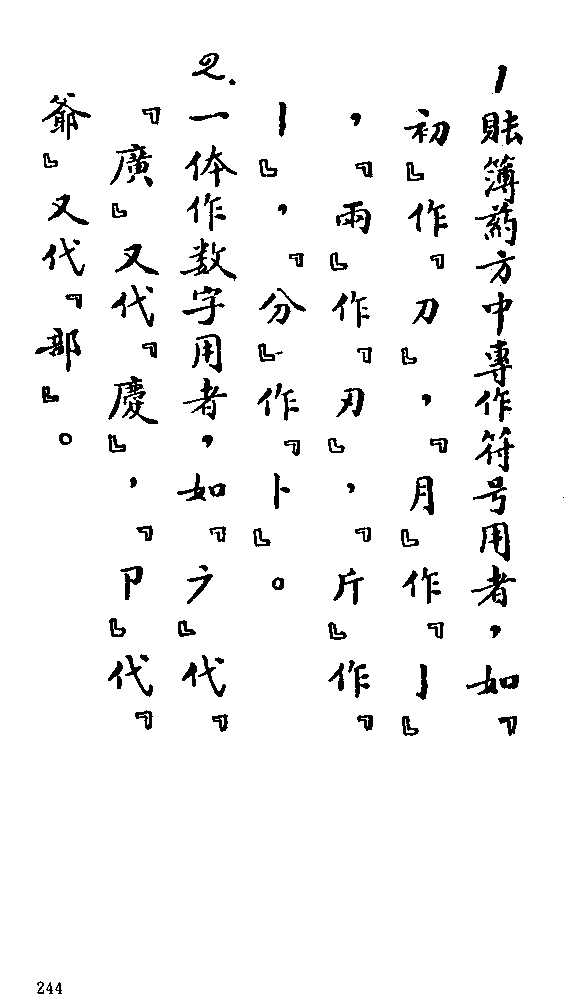 1 賬簿药方中專作符号用者，如『
初』作『刀』，『月』作『亅』
，『兩』作『刃』，『斤』作『
丨』，『分』作『卜』。
2. 一体作数字用者，如『𠂇』代『
『廣』又代『慶』，『卩』代『
爺』又代『部』。
244